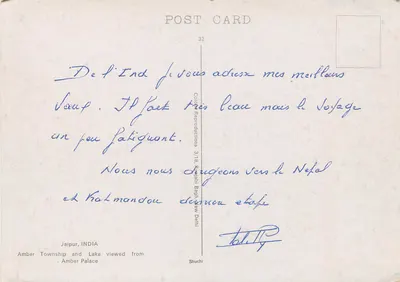 POST CARD
35
De l'Ind je vous adresse mes meilleurs
vœux. Il fait très beau mais le voyage
un peu fatiguant.
Nous nous dirigeons vers le Népal
et Katmandou dernière étape
Jaipur, INDIA
Amber Township and Lake viewed from
Amber Palace